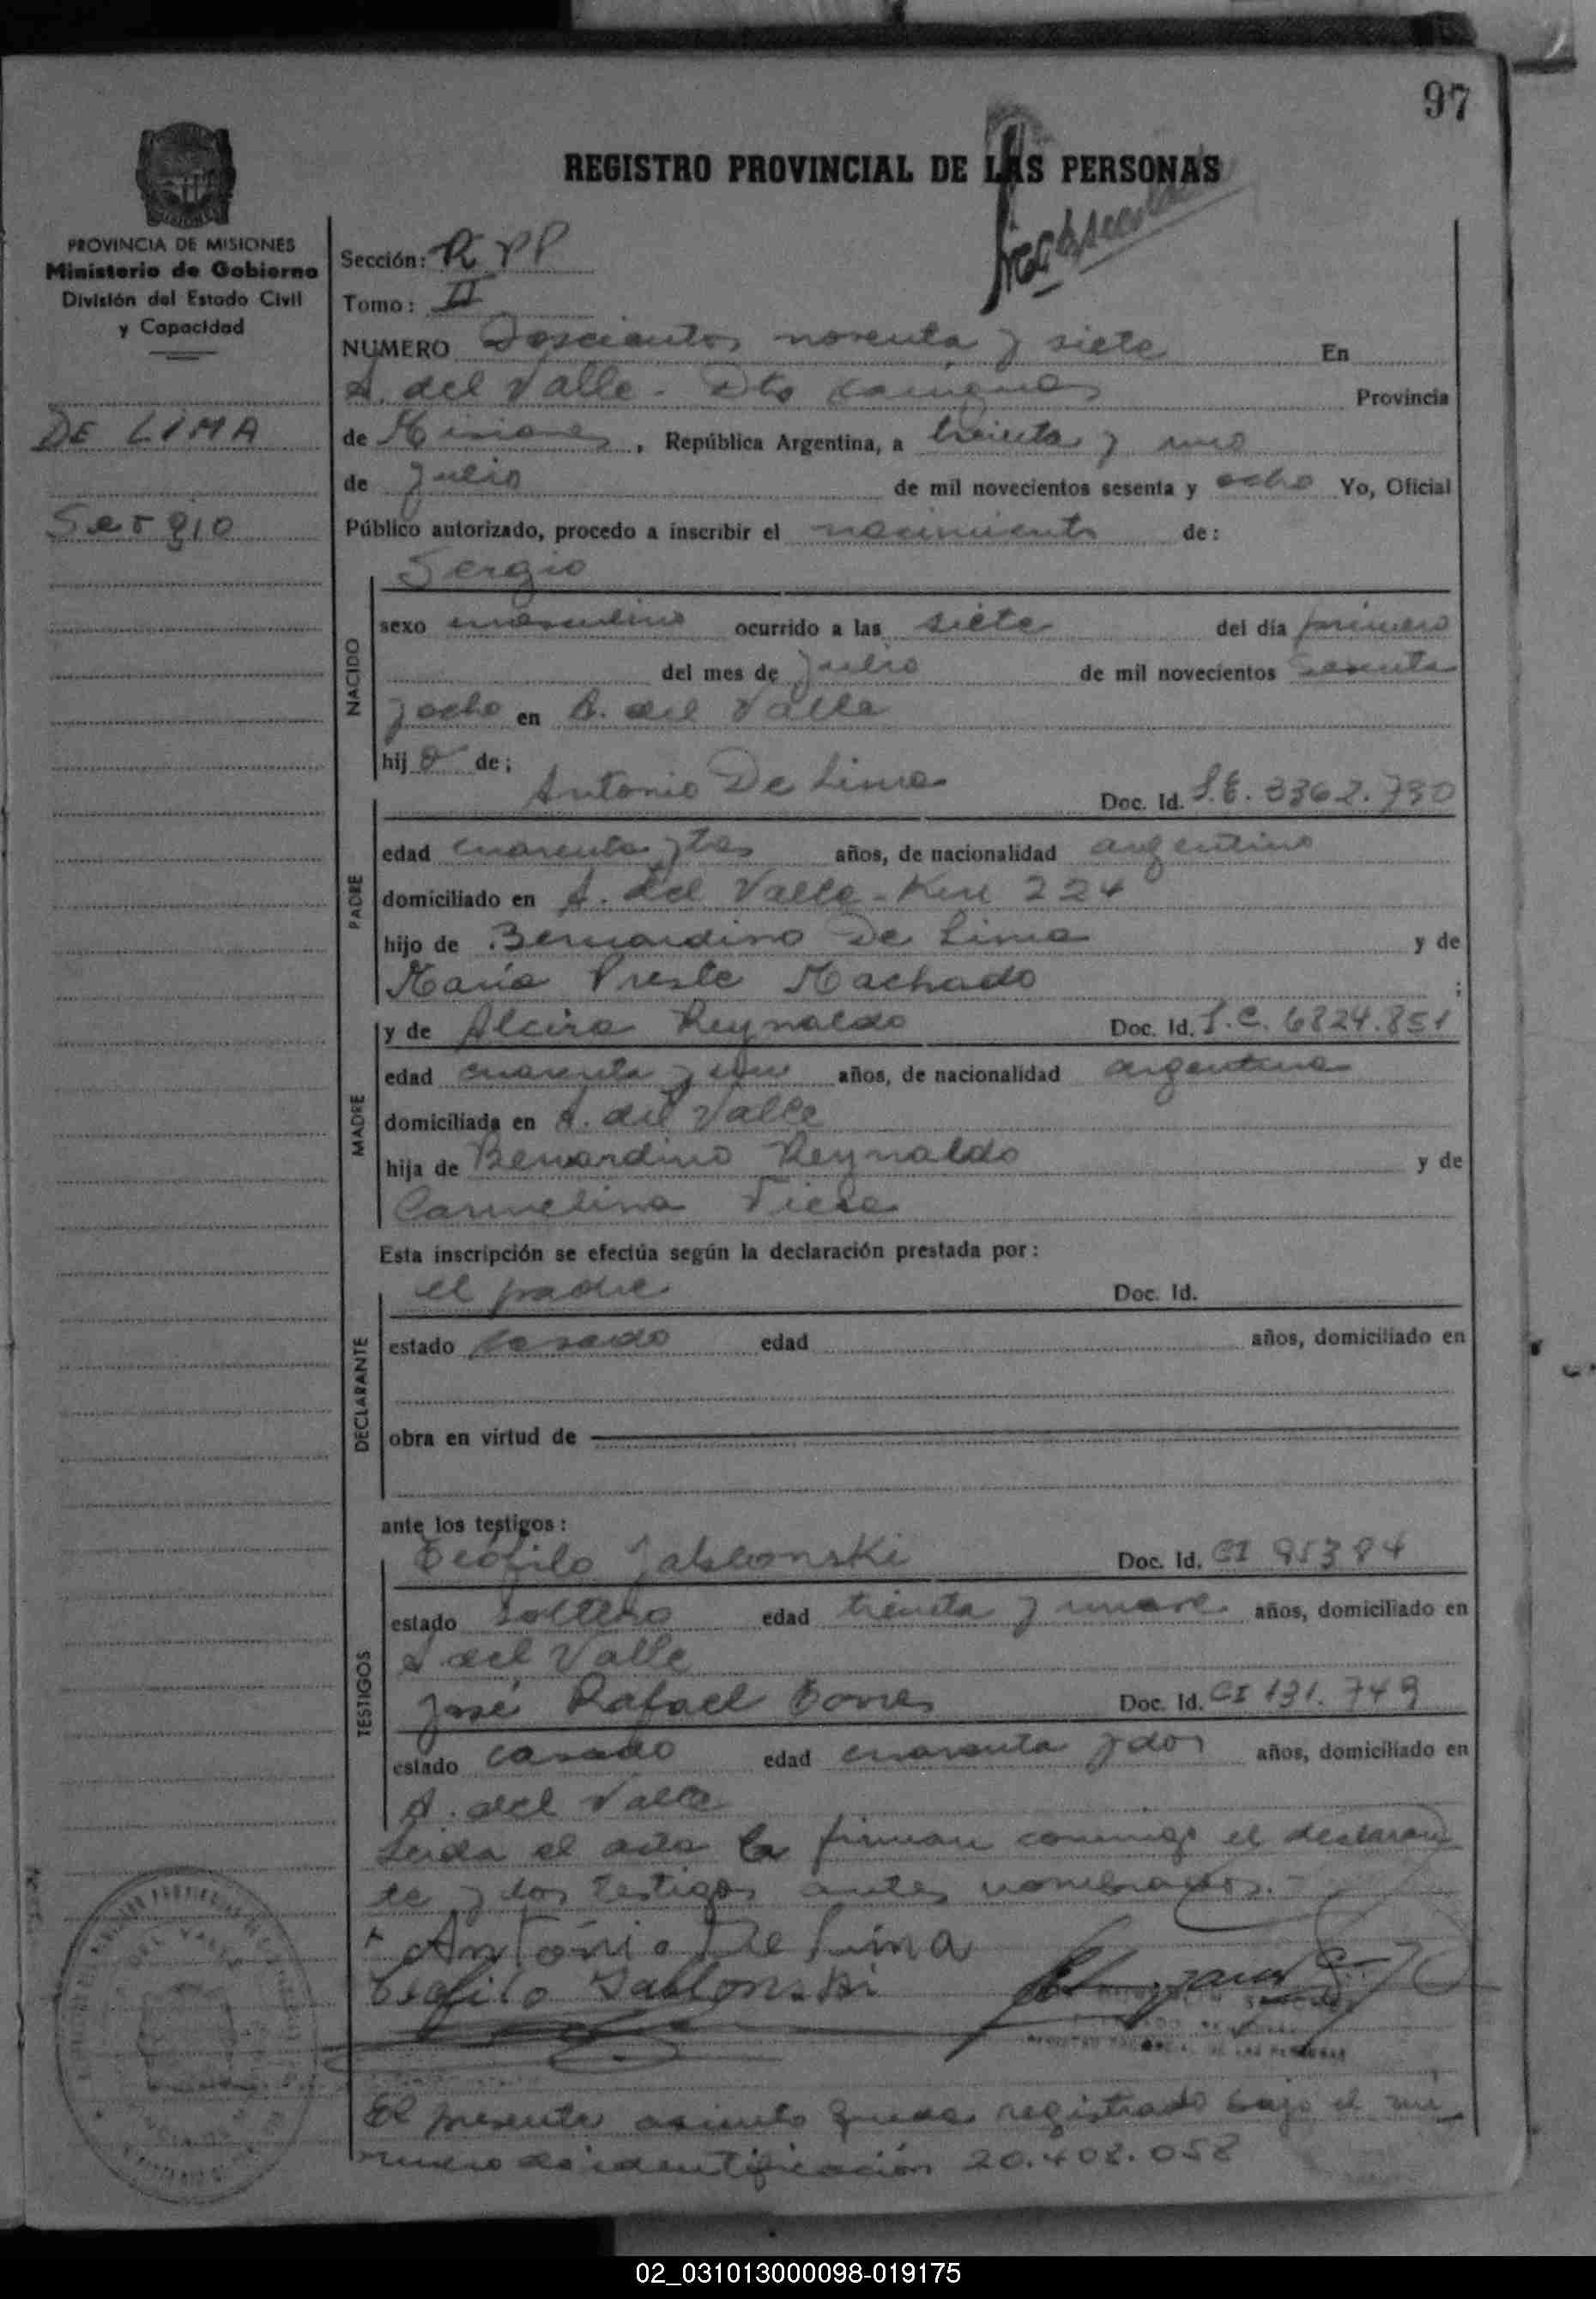 97
REGISTRO PROVINCIAL DE LAS PERSONAS
PROVINCIA DE MISIONES
Ministerio de Gobierno
División del Estado Civil
y Capacidad
DE LIMA
Sergio
Sección: R P P
Tomo: II
NUMERO Doscientos noventa y siete En
A. del Valle - Dto Cainguas Provincia
de Misiones, República Argentina, a treinta y uno
de Julio de mil novecientos sesenta y ocho Yo, Oficial
Público autorizado, procedo a inscribir el nacimiento de:
Sergio
NACIDO
sexo masculino ocurrido a las siete del día primero
del mes de Julio de mil novecientos sesenta
y ocho en A. del Valle
hijo de;
PADRE
Antonio De Lima Doc. Id. L.E. 3362.730
edad cuarenta y tres años, de nacionalidad argentino
domiciliado en A. del Valle - Km 224
hijo de Bernardino De Lima y de
María Preste Machado ;
MADRE
y de Alcira Reynaldo Doc. Id. L.C. 6824.851
edad cuarenta y un años, de nacionalidad argentina
domiciliada en A. del Valle
hija de Bernardino Reynaldo y de
Carmelina
Esta inscripción se efectúa según la declaración prestada por:
DECLARANTE
el padre Doc. Id.
estado casado edad años, domiciliado en
obra en virtud de
ante los testigos:
TESTIGOS
Teófilo Jablonski Doc. Id. CI
estado soltero edad treinta y nueve años, domiciliado en
A del Valle
José Rafael Torres Doc. Id. CI 131.749
estado casado edad cuarenta y dos años, domiciliado en
A. del Valle
Leída el acta la firman conmigo el declaran
te y dos testigos antes nombrados.-
Antonio De Lima
Teofilo Jablonski
El presente asiento queda registrado bajo el nú
mero de identificación 20.408.058
02_031013000098-019175